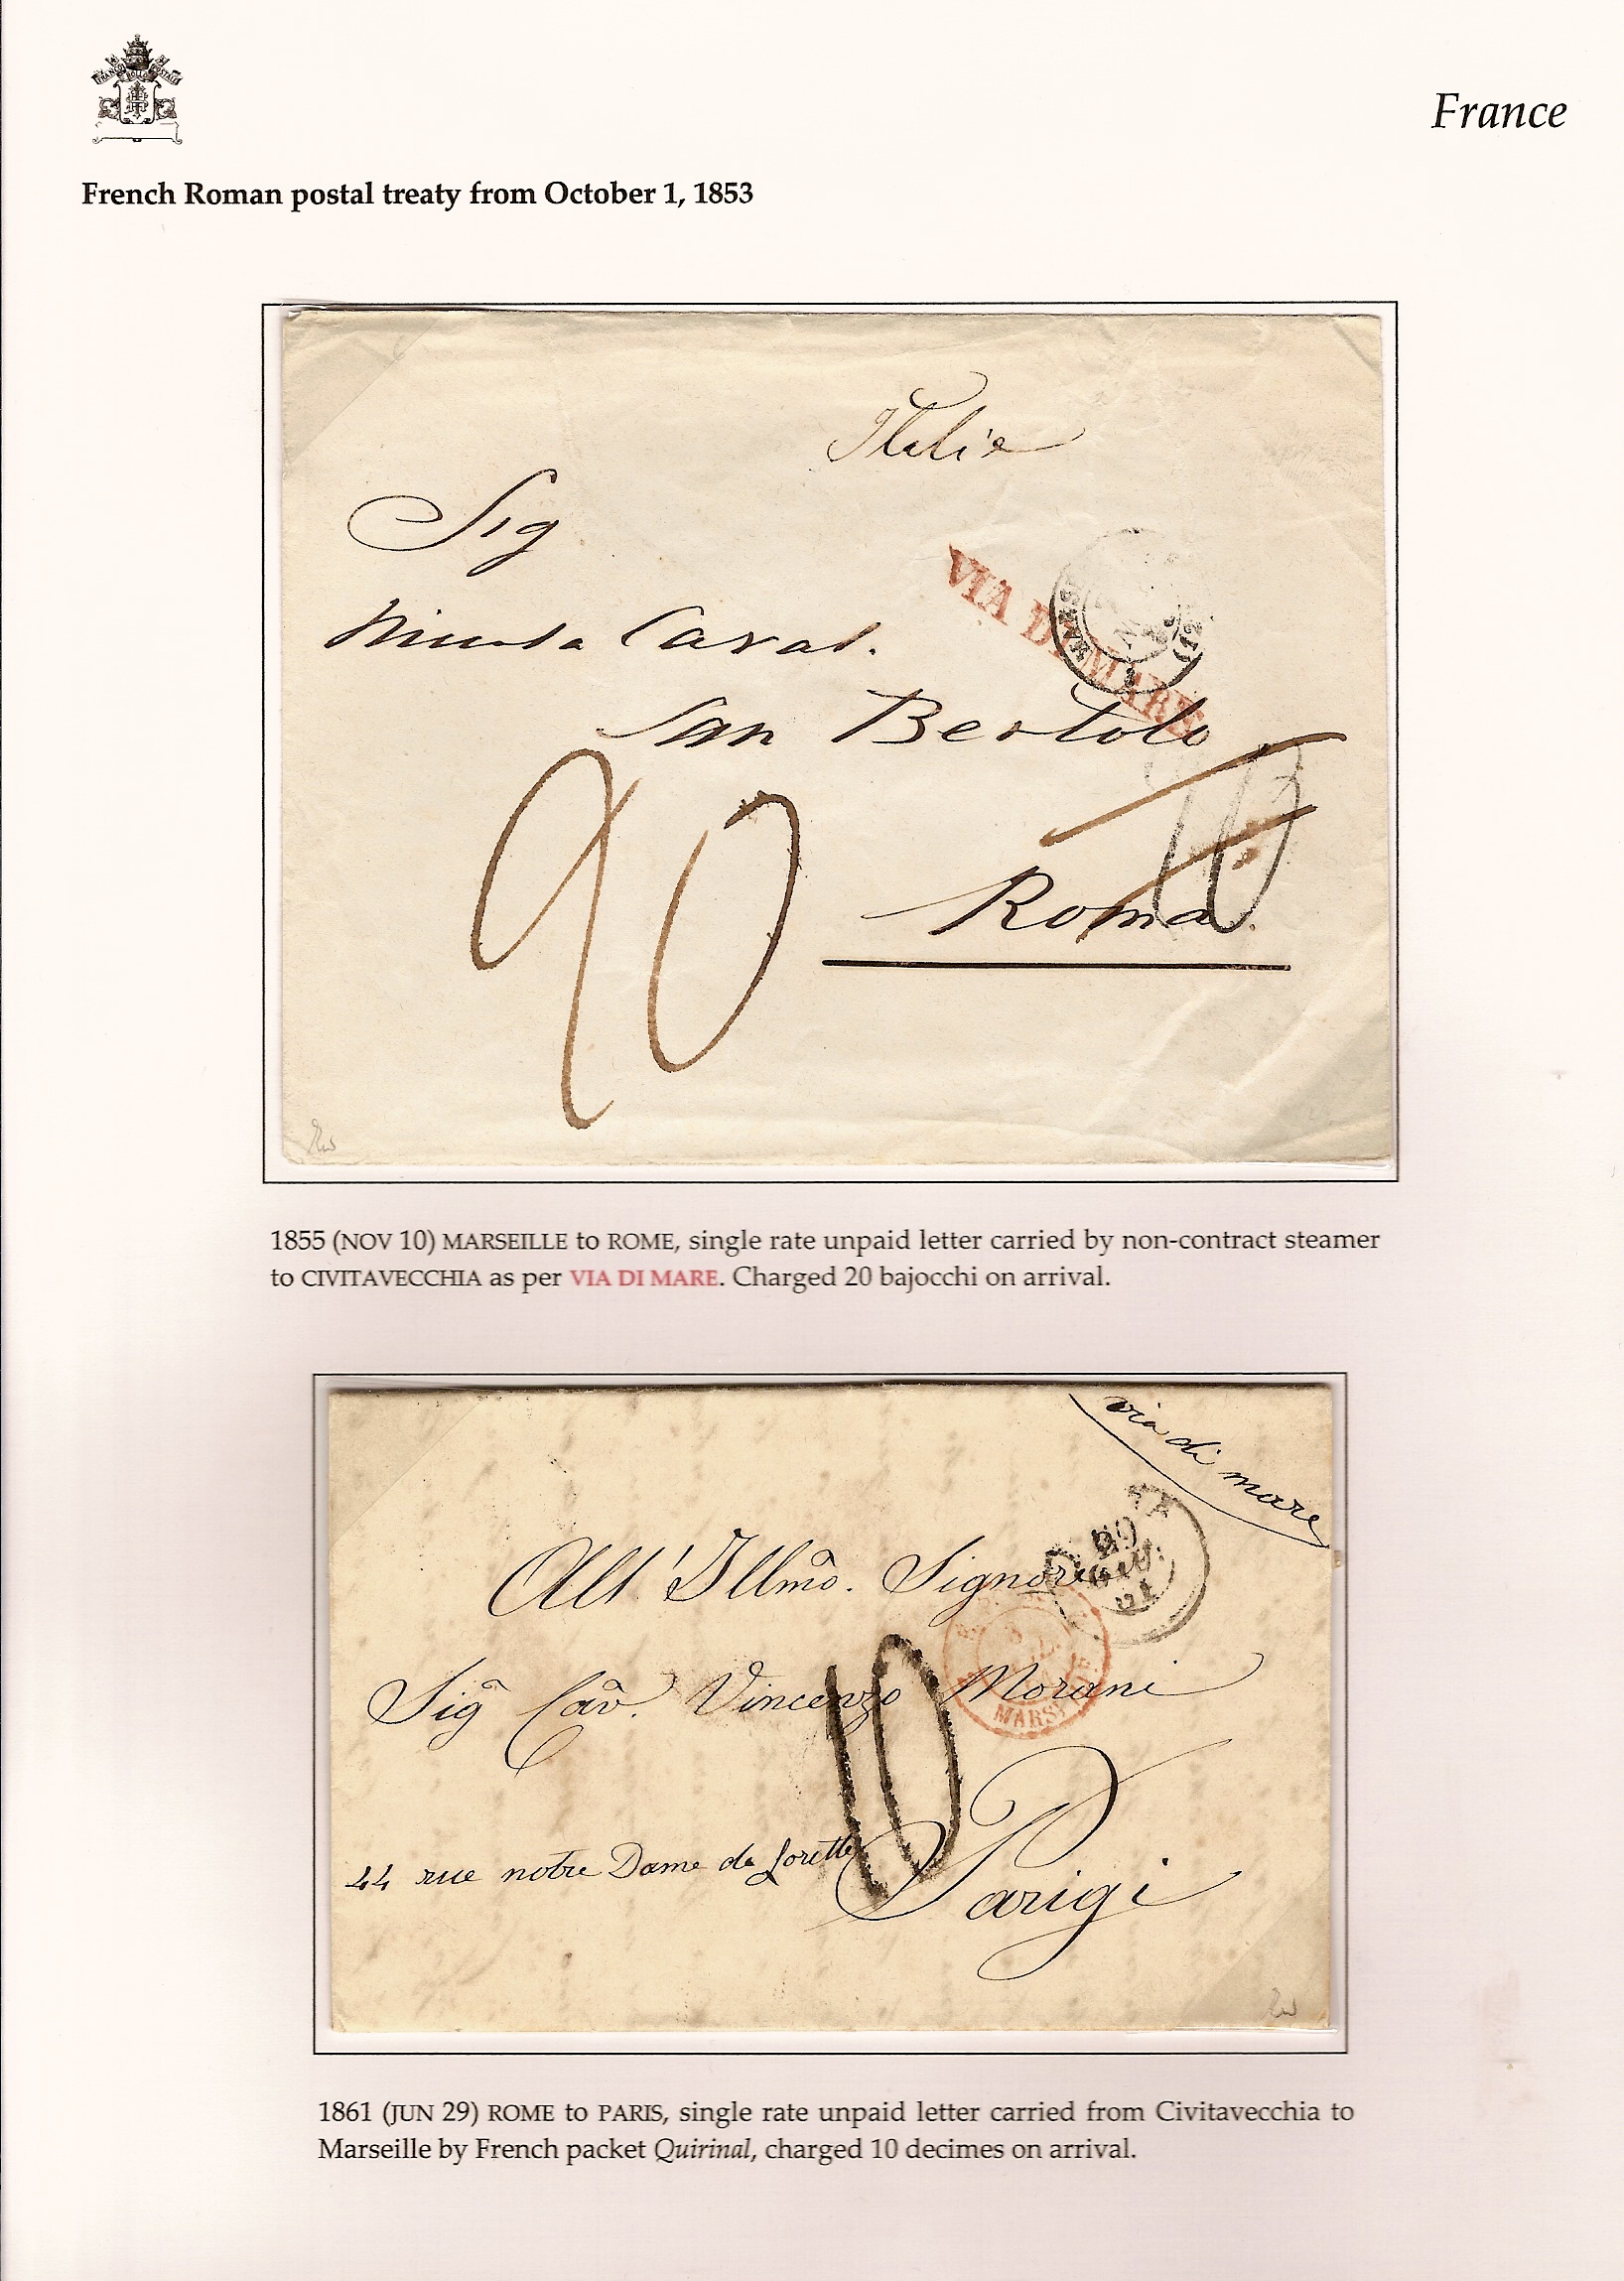 France
French Roman postal treaty from October 1, 1853
Italie
Sig
Caval.
San Bertolo
VIA DI MARE
20
10
Roma.
1855 (NOV 10) MARSEILLE to ROME, single rate unpaid letter carried by non-contract steamer
to CIVITAVECCHIA as per VIA DI MARE. Charged 20 bajocchi on arrival.
via di mare
All' Illmo. Signore
29
GIU.
61
Sig Cav. Vincenzo Morani
MARS
10
44 rue notre Dame de Lorette
Parigi
1861 (JUN 29) ROME to PARIS, single rate unpaid letter carried from Civitavecchia to
Marseille by French packet Quirinal, charged 10 decimes on arrival.